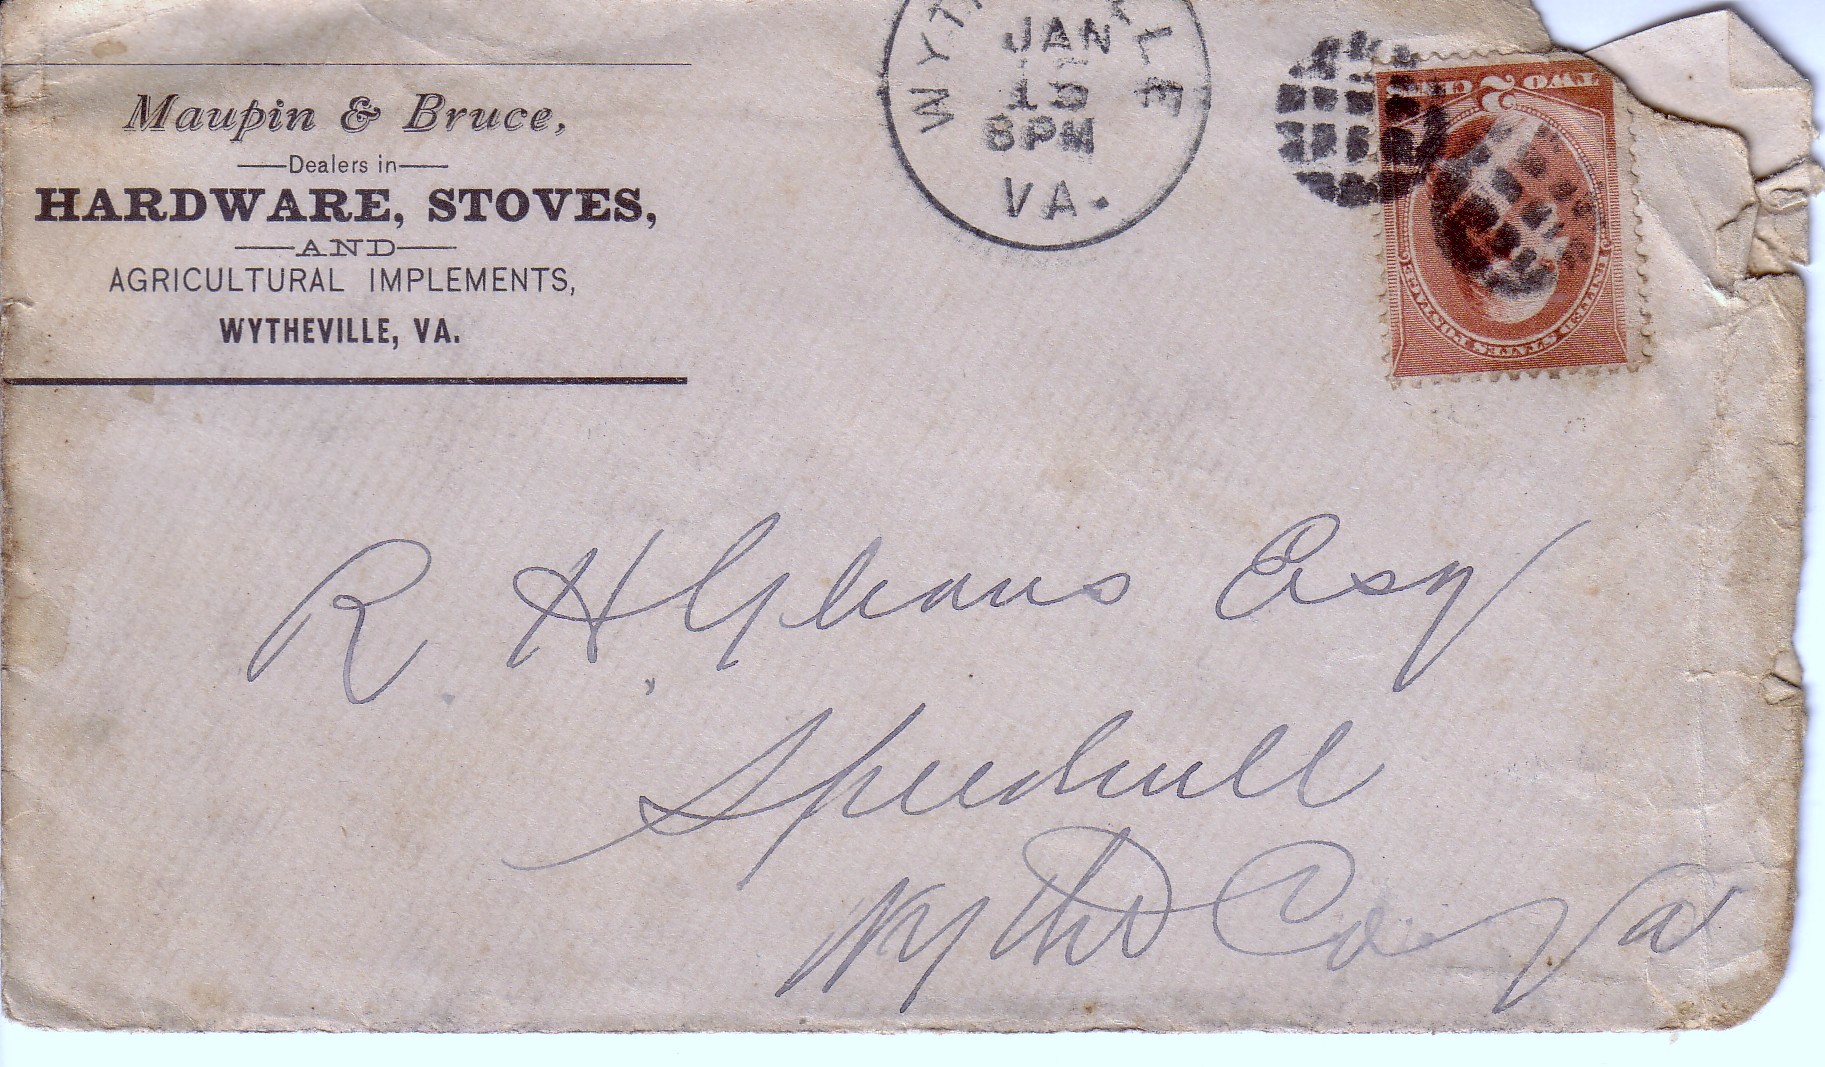 Maupin & Bruce,
Dealers in
HARDWARE, STOVES,
AND
AGRICULTURAL IMPLEMENTS,
WYTHEVILLE, VA.
JAN
13
8PM
VA.
TWO 2 CENTS
UNITED STATES POSTAGE
R. H. Esq
Speedwell
Wythe Co Va